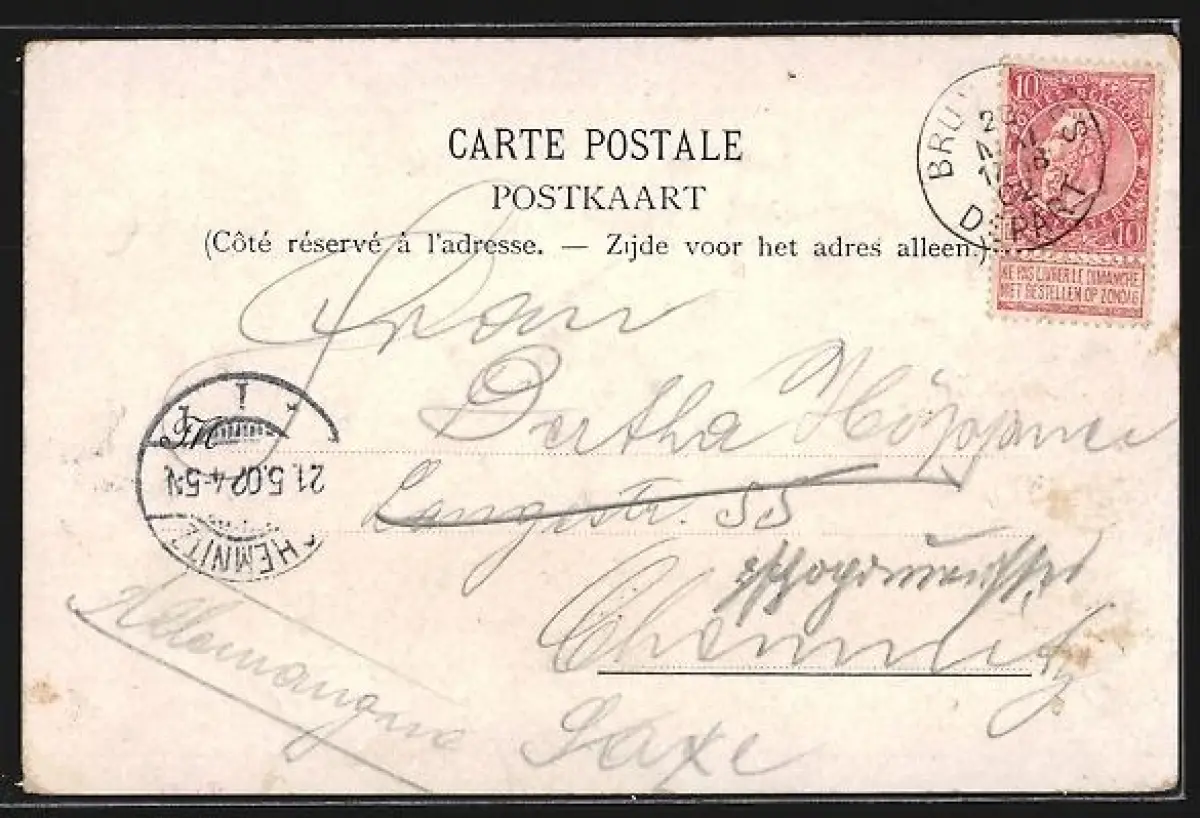 CARTE POSTALE
POSTKAART
(Côté réservé à l'adresse. — Zijde voor het adres alleen.)
10 10
POSTES BELGIQUE
10
NE PAS LIVRER LE DIMANCHE
NIET BESTELLEN OP ZONDAG
DEPART
Frau
Bertha Höppner
Langestr. 55
Chemnitz
Saxe
Allemangne
21.5.02 4-5N
CHEMNITZ
1